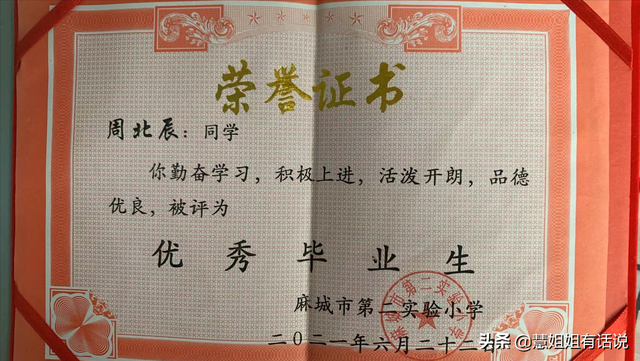 荣誉证书
周北辰：同学
你勤奋学习，积极上进，活泼开朗，品德
优良，被评为
优秀毕业生
麻城市第二实验小学
二〇二一年六月二十二
头条 @慧姐姐有话说